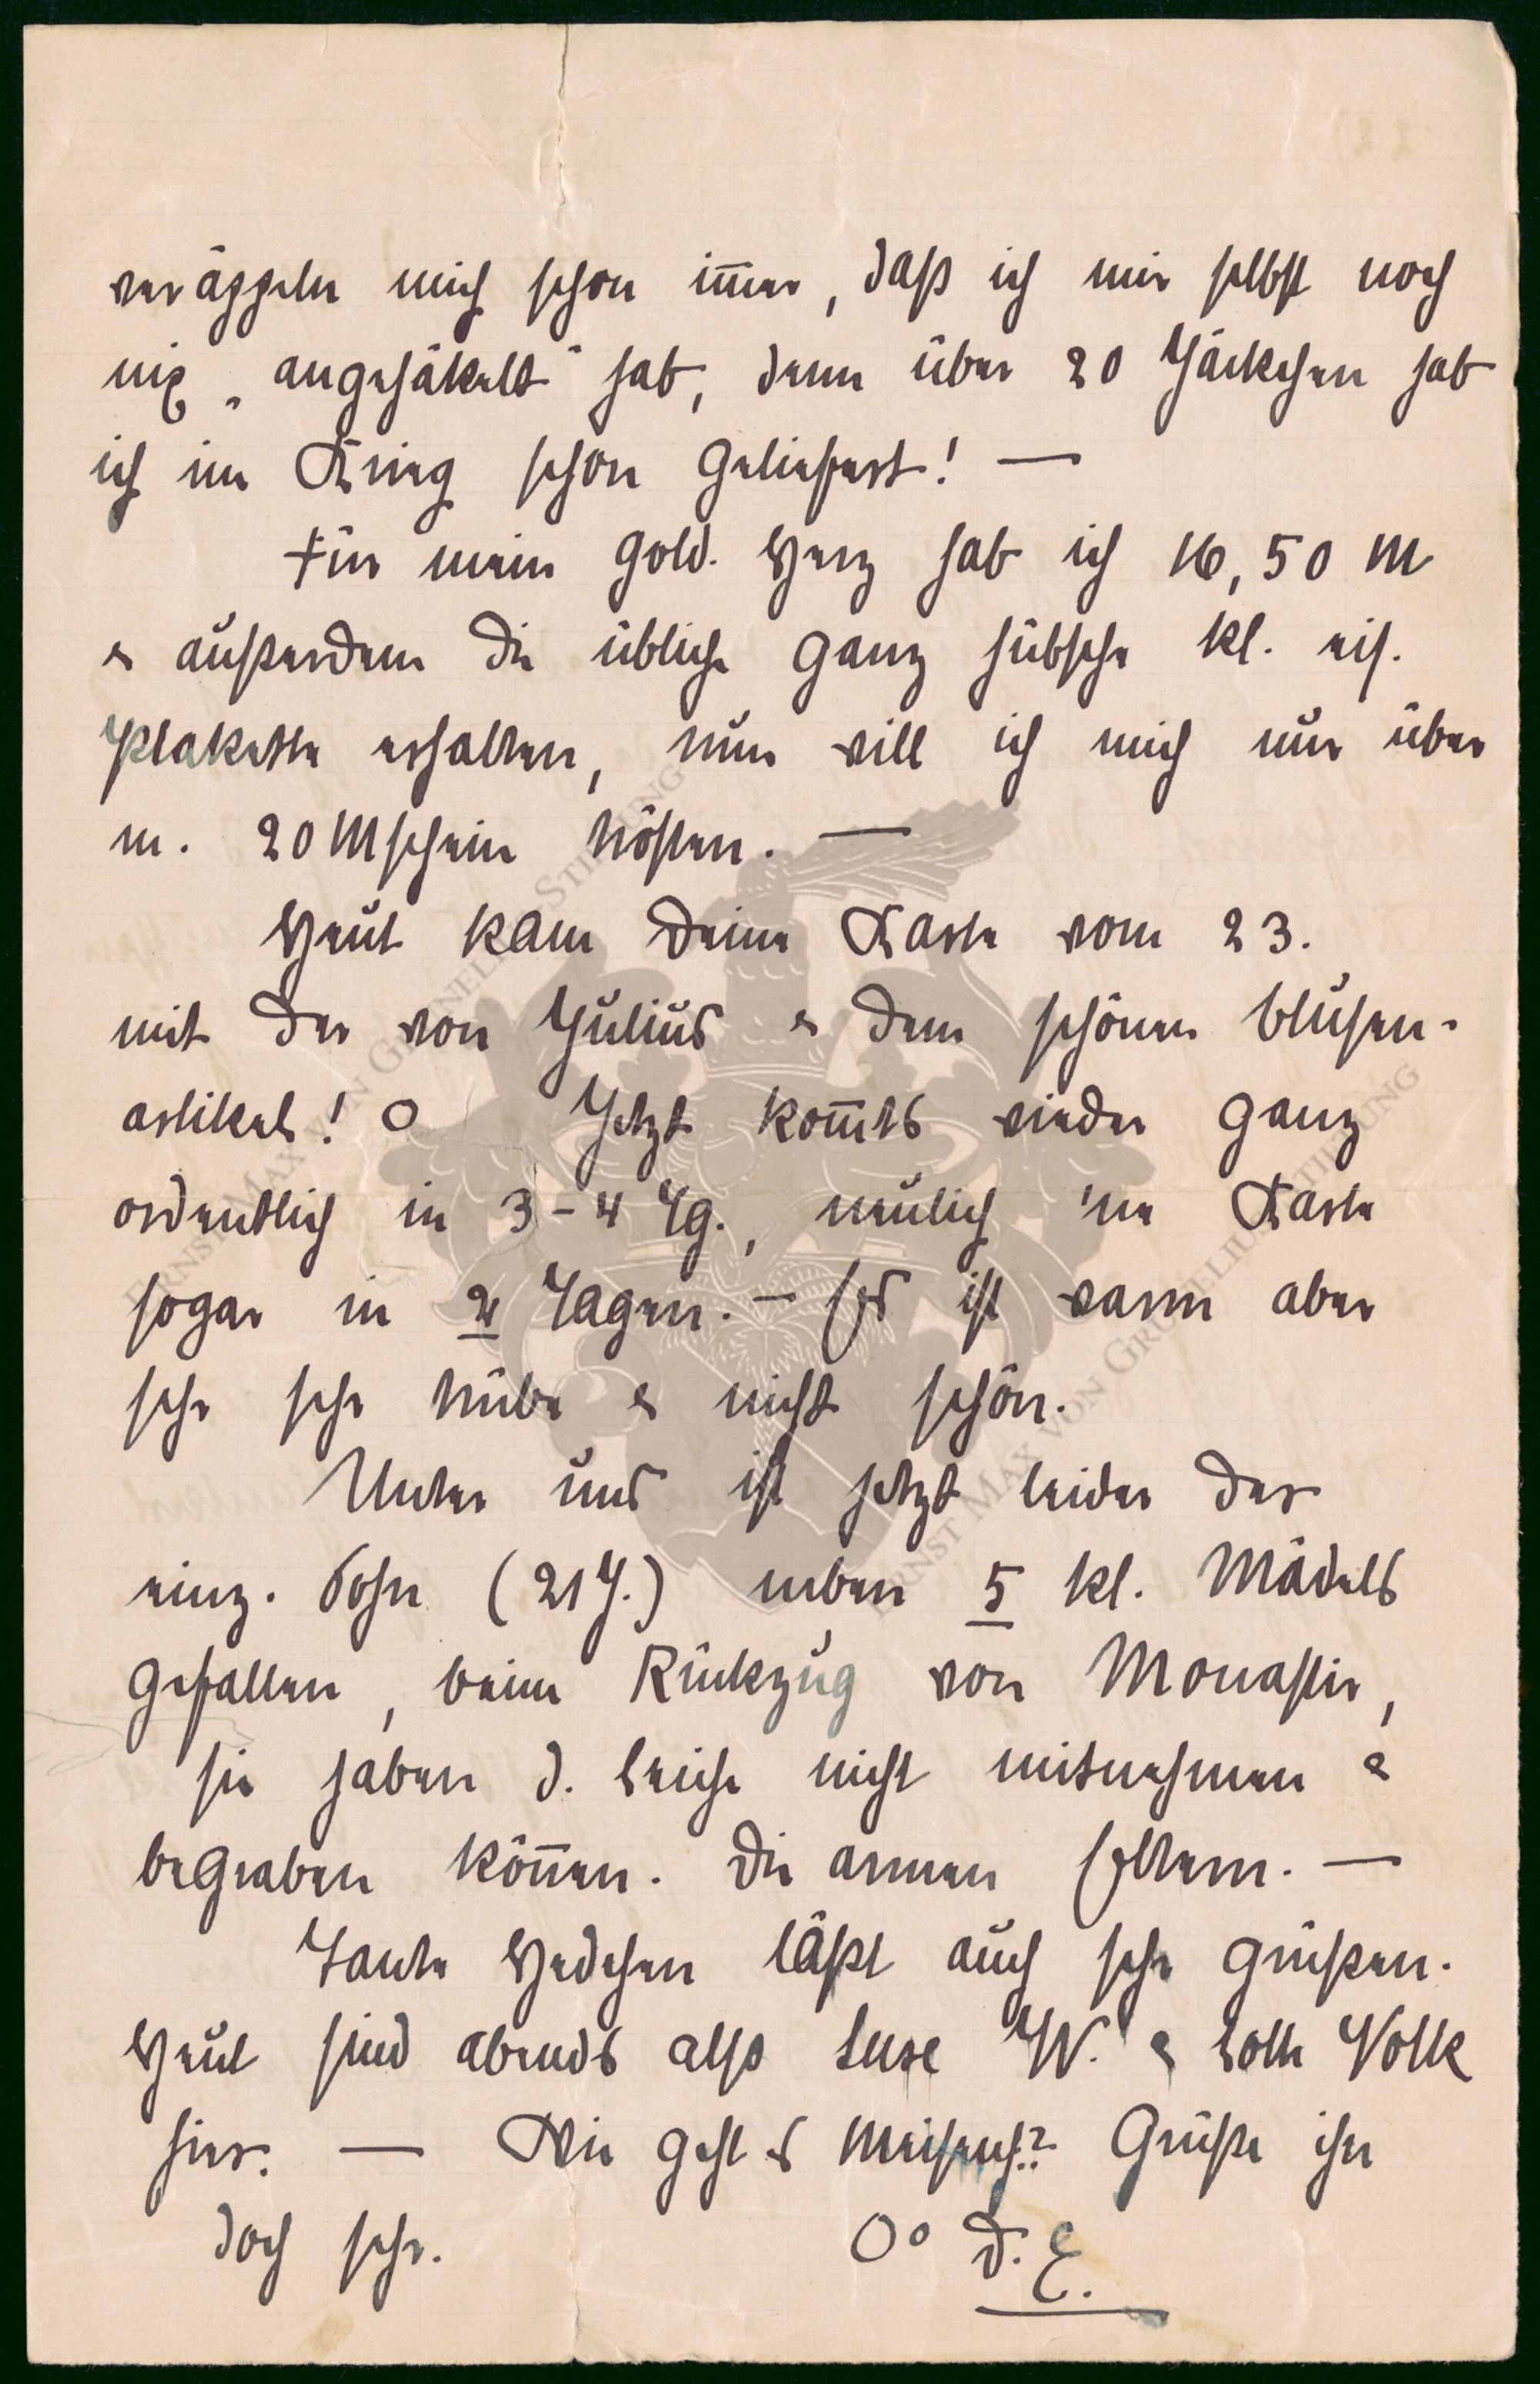 veräppeln mich schon im̅er, daß ich mir selbst noch
nix „angehäkelt“ hab, denn über 20 Jäckchen hab
ich im Krieg schon geliefert! —
Für mein gold. Herz hab ich 16,50 M
& außerdem die übliche ganz hübsche kl. eis.
Plakette erhalten, nun will ich mich nur über
m. 20 Mschein trösten. —
Heut kam Deine Karte vom 23.
mit der von Julius & dem schönen Blusen-
artikel! O Jetzt kom̅ts wieder ganz
ordentlich in 3-4 Tg., neulich 'ne Karte
sogar in 2 Tagen. — Es ist warm aber
sehr sehr trübe & nicht schön.
Unter uns ist jetzt leider der
einz. Sohn (21 J.) neben 5 kl. Mädels
gefallen, beim Rückzug von Monastir,
sie haben d. Leiche nicht mitnehmen &
begraben kön̅en. Die armen Eltern. —
Tante Hedchen läßt auch sehr grüßen.
Heut sind abends also Luse W. & Lotte Volk
hier. — Wie geht's Grüße ihn
doch sehr. Oo D. E.
ERNST MAX VON GRUNELIUS STIFTUNG
ERNST MAX VON GRUNELIUS STIFTUNG